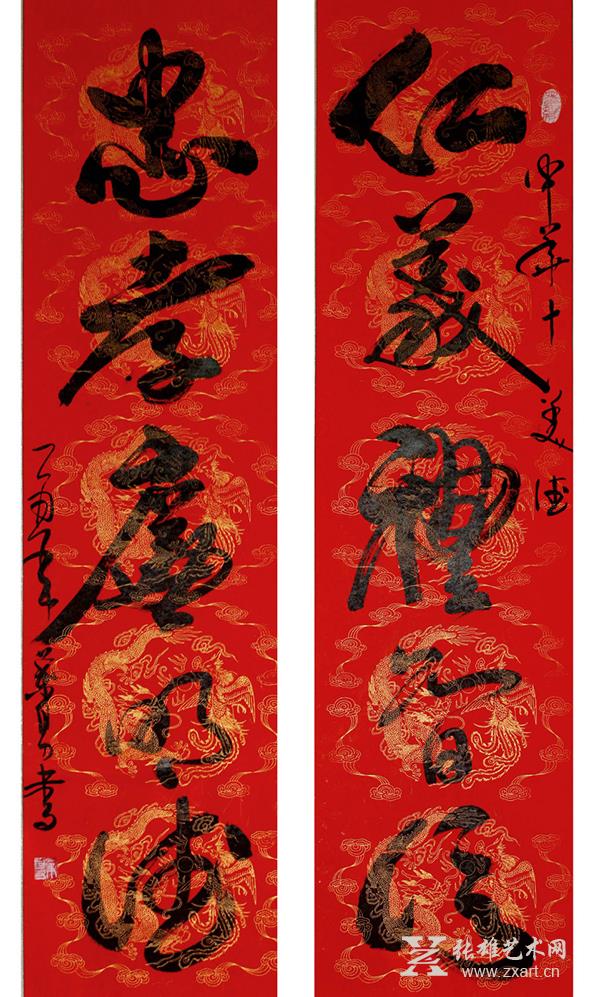 仁義禮智信
中華十美德
忠孝廉明德
丁酉年
書
张雄艺术网
www.zxart.cn